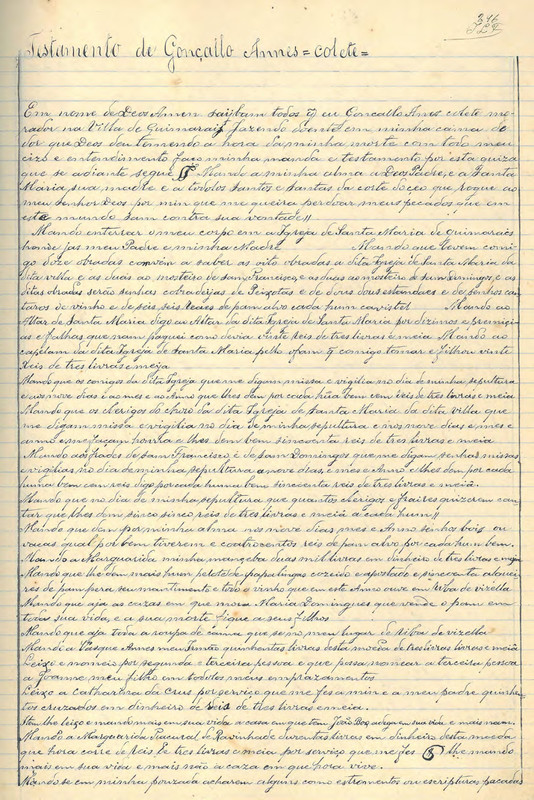 346
Testamento de Gonçallo Annes = colete =
Em nome de Deos Amen saijbam todos q̃ eu Goncallo Anes colete mo-
rador na Villa de Guimarais jazendo doente em minha cama de
dor que Deos deu temendo a hora da minha morte com todo meu
cizo e entendimento faço minha manda e testamento por esta guiza
que se adiante segue Mando a minha alma a Deos Padre, e a Santa
Maria, sua madre e a todolos Santos e Santas da corte do çeo que rogue ao
meu Senhor Deos por mim que me queira perdoar meus peçados que em
este mundo fam contra sua vontade //
Mando enterrar o meu corpo em a Igreja de Santa Maria de guimarães
honde jas meu Padre e minha Madre Mando que levem comi-
go doze obradas convem a saber as oito obradas a dita Igreja de Santa Maria da
dita villa e as duas ao mosteiro de sam Francisco, e as duas ao mosteiro de sam Domingos, e as
ditas obradas serão senhas cobradeijas de Peixotas e de dores dous estandues e de senhos can-
taros de vinho e de seis seis Reaes de pam alvo cada hum cavistel Mando ao
Altar de Santa Maria digo ao Altar da dita Igreja de Santa Maria por dizimos e premiçi-
as e falhas que nam paguei como devia vinte reis de tres livras e meia Mando ao
capelam da dita Igreja de Santa Maria pello afam q̃ comigo tomar e filhou vinte
Reis de tres livras e meija
Mando que os conigos da dita Igreja que me digam missa e vigilia no dia de minha sepultura
e aos nove dias e ao mes e ao Anno que lhes dem por cada hũa bem cem reis de tres livras e meia
Mando que os clerigos do choro da dita Igreja de Santa Maria da dita villa que
me digam missa e vigilia no dia de minha sepultura e nos nove dias e mes e
anno e me façam honrra e lhes dem bem sincoenta reis de tres livras e meia
Mando aos frades de sam Francisco e de sam Domingos que me digam senhas missas
e vigilias no dia de minha sepultura a nove dias, e mes e Anno e lhes dem por cada
huma bem cem reis digo por cada huma bem sincoenta reis de tres livras e meia.
Mando que no dia de minha sepultura que quantos clerigos e fraires quizerem can-
tar que lhes dem sinco sinco reis de tres livras e meia a cada hum //
Mando que dem por minha alma nos nove dias, mes e Anno senhos bois ou
vacas qual por bem tiverem e catrocentos reis de pam alvo por cada hum bem.
Mando a Marguarida minha mançeba duas mil livras em dinheiro de tres livras e meia
Mando que lhe dem mais hum pelote de papulingas cozeido e apostado e sincoenta alquei-
res de pam pera seu mantimento e todo o vinho que em este Anno ouve em Uvoa de vizella
Mando que aja as cazas em que mora Maria Domingues que vende o pam em
toda sua vida, e a sua morte fique a seus filhos
Mando que aja toda a roupa de cama que se no meu lugar de Riba de vizella
Mando a Vasque Annes meu Irmão quinhentas livras desta moeda de tres livras e meia
Leixo e nomeio por segunda e terceira pessoa e que possa nomear a terceira pessoa
a Joanne meu filho em todolos meus emprazamentos
Leixo a Catharina da Crus por serviço que me fes a mim e a meu padre quinhen-
tos cruzados em dinheiro de reis de tres livras e meia.
Item lhe leixo e mando mais em sua vida a casa em que tem João Boz adega em sua vida e mais nam.
Mando a Marguarida Pacural de Ravinhade duzentas livras em dinheiro desta moeda
que hora corre de Reis de tres livras e meia por serviço que me fes lhe mando
mais em sua vida e mais não a caza em que hora vive.
Mando se em minha pouzada acharem alguns como estromentos ou escripturas passadas